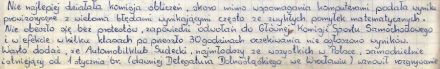 Nie najlepiej działała komisja obliczeń, skoro mimo wspomagania komputerami podała wyniki
prowizoryczne z wieloma błędami wynikającymi często ze zwykłych pomyłek matematycznych.
Nie obeszło się bez protestów, zapowiedzi odwołań do Głównej Komisji Sportu Samochodowego
i w efekcie w kilku klasach po prawie 30 godzinach oczekiwania nie ogłoszono wyników.
Warto dodać, że Automobilklub Sudecki, najmłodszy ze wszystkich w Polsce, samodzielnie
istniejący od 1 stycznia br. (dawniej Delegatura Dolnośląskiego - we Wrocławiu) wznowił rozgrywanie